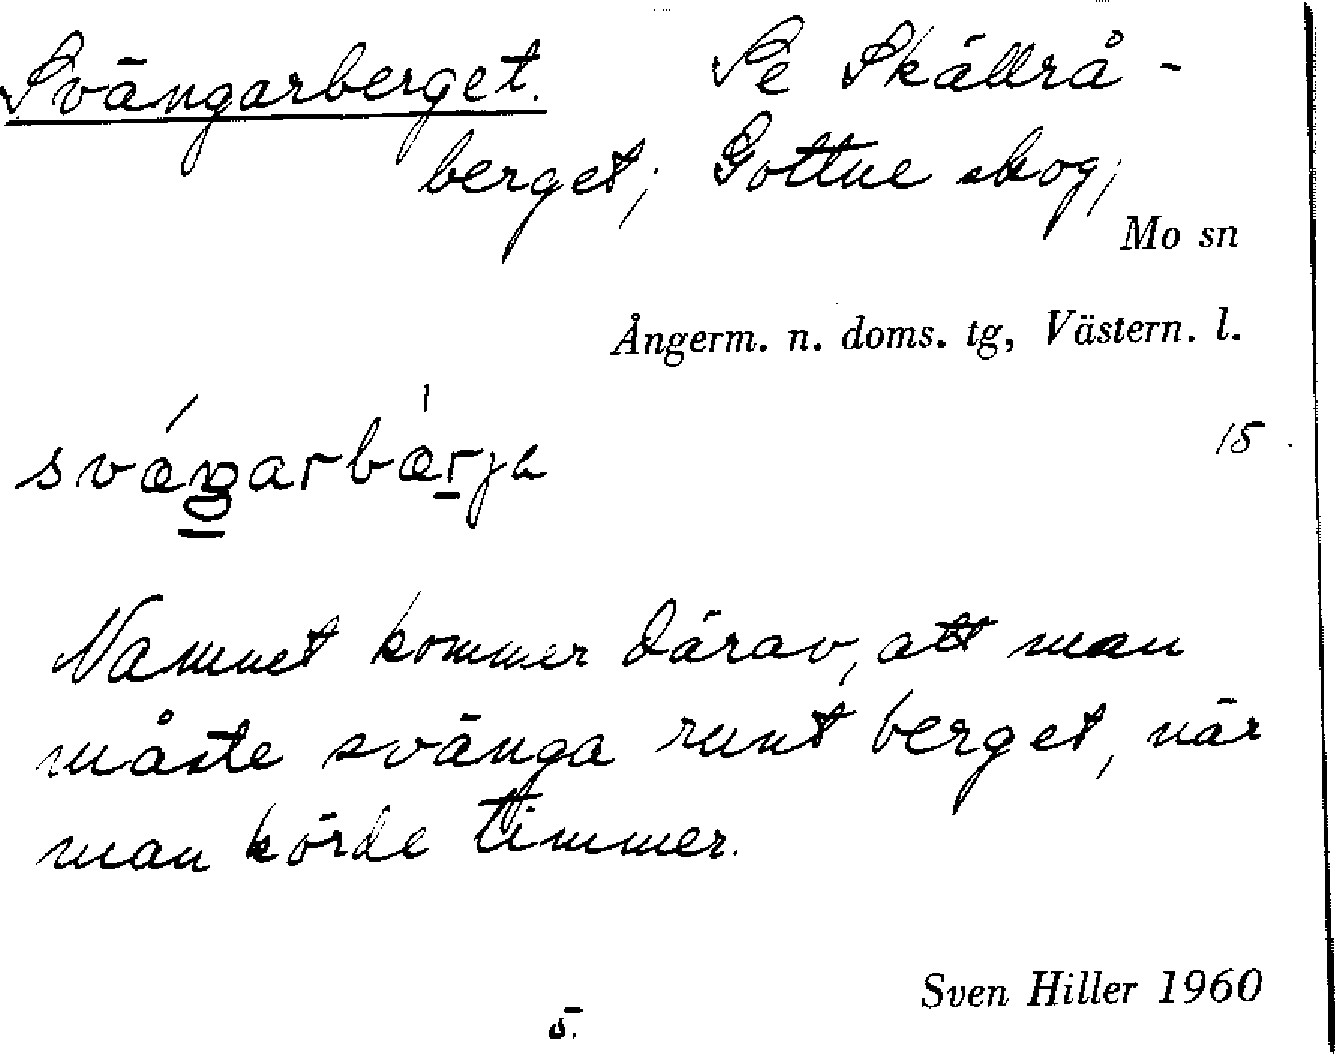 Svängarberget. Se Skällrå-
berget; Gottne skog;
Mo sn
Ångerm. n. doms. tg, Västern. l.
15
sváŋarbærja
Namnet kommer därav, att man
måste svänga runt berget, när
man körde timmer.
Sven Hiller 1960
5.